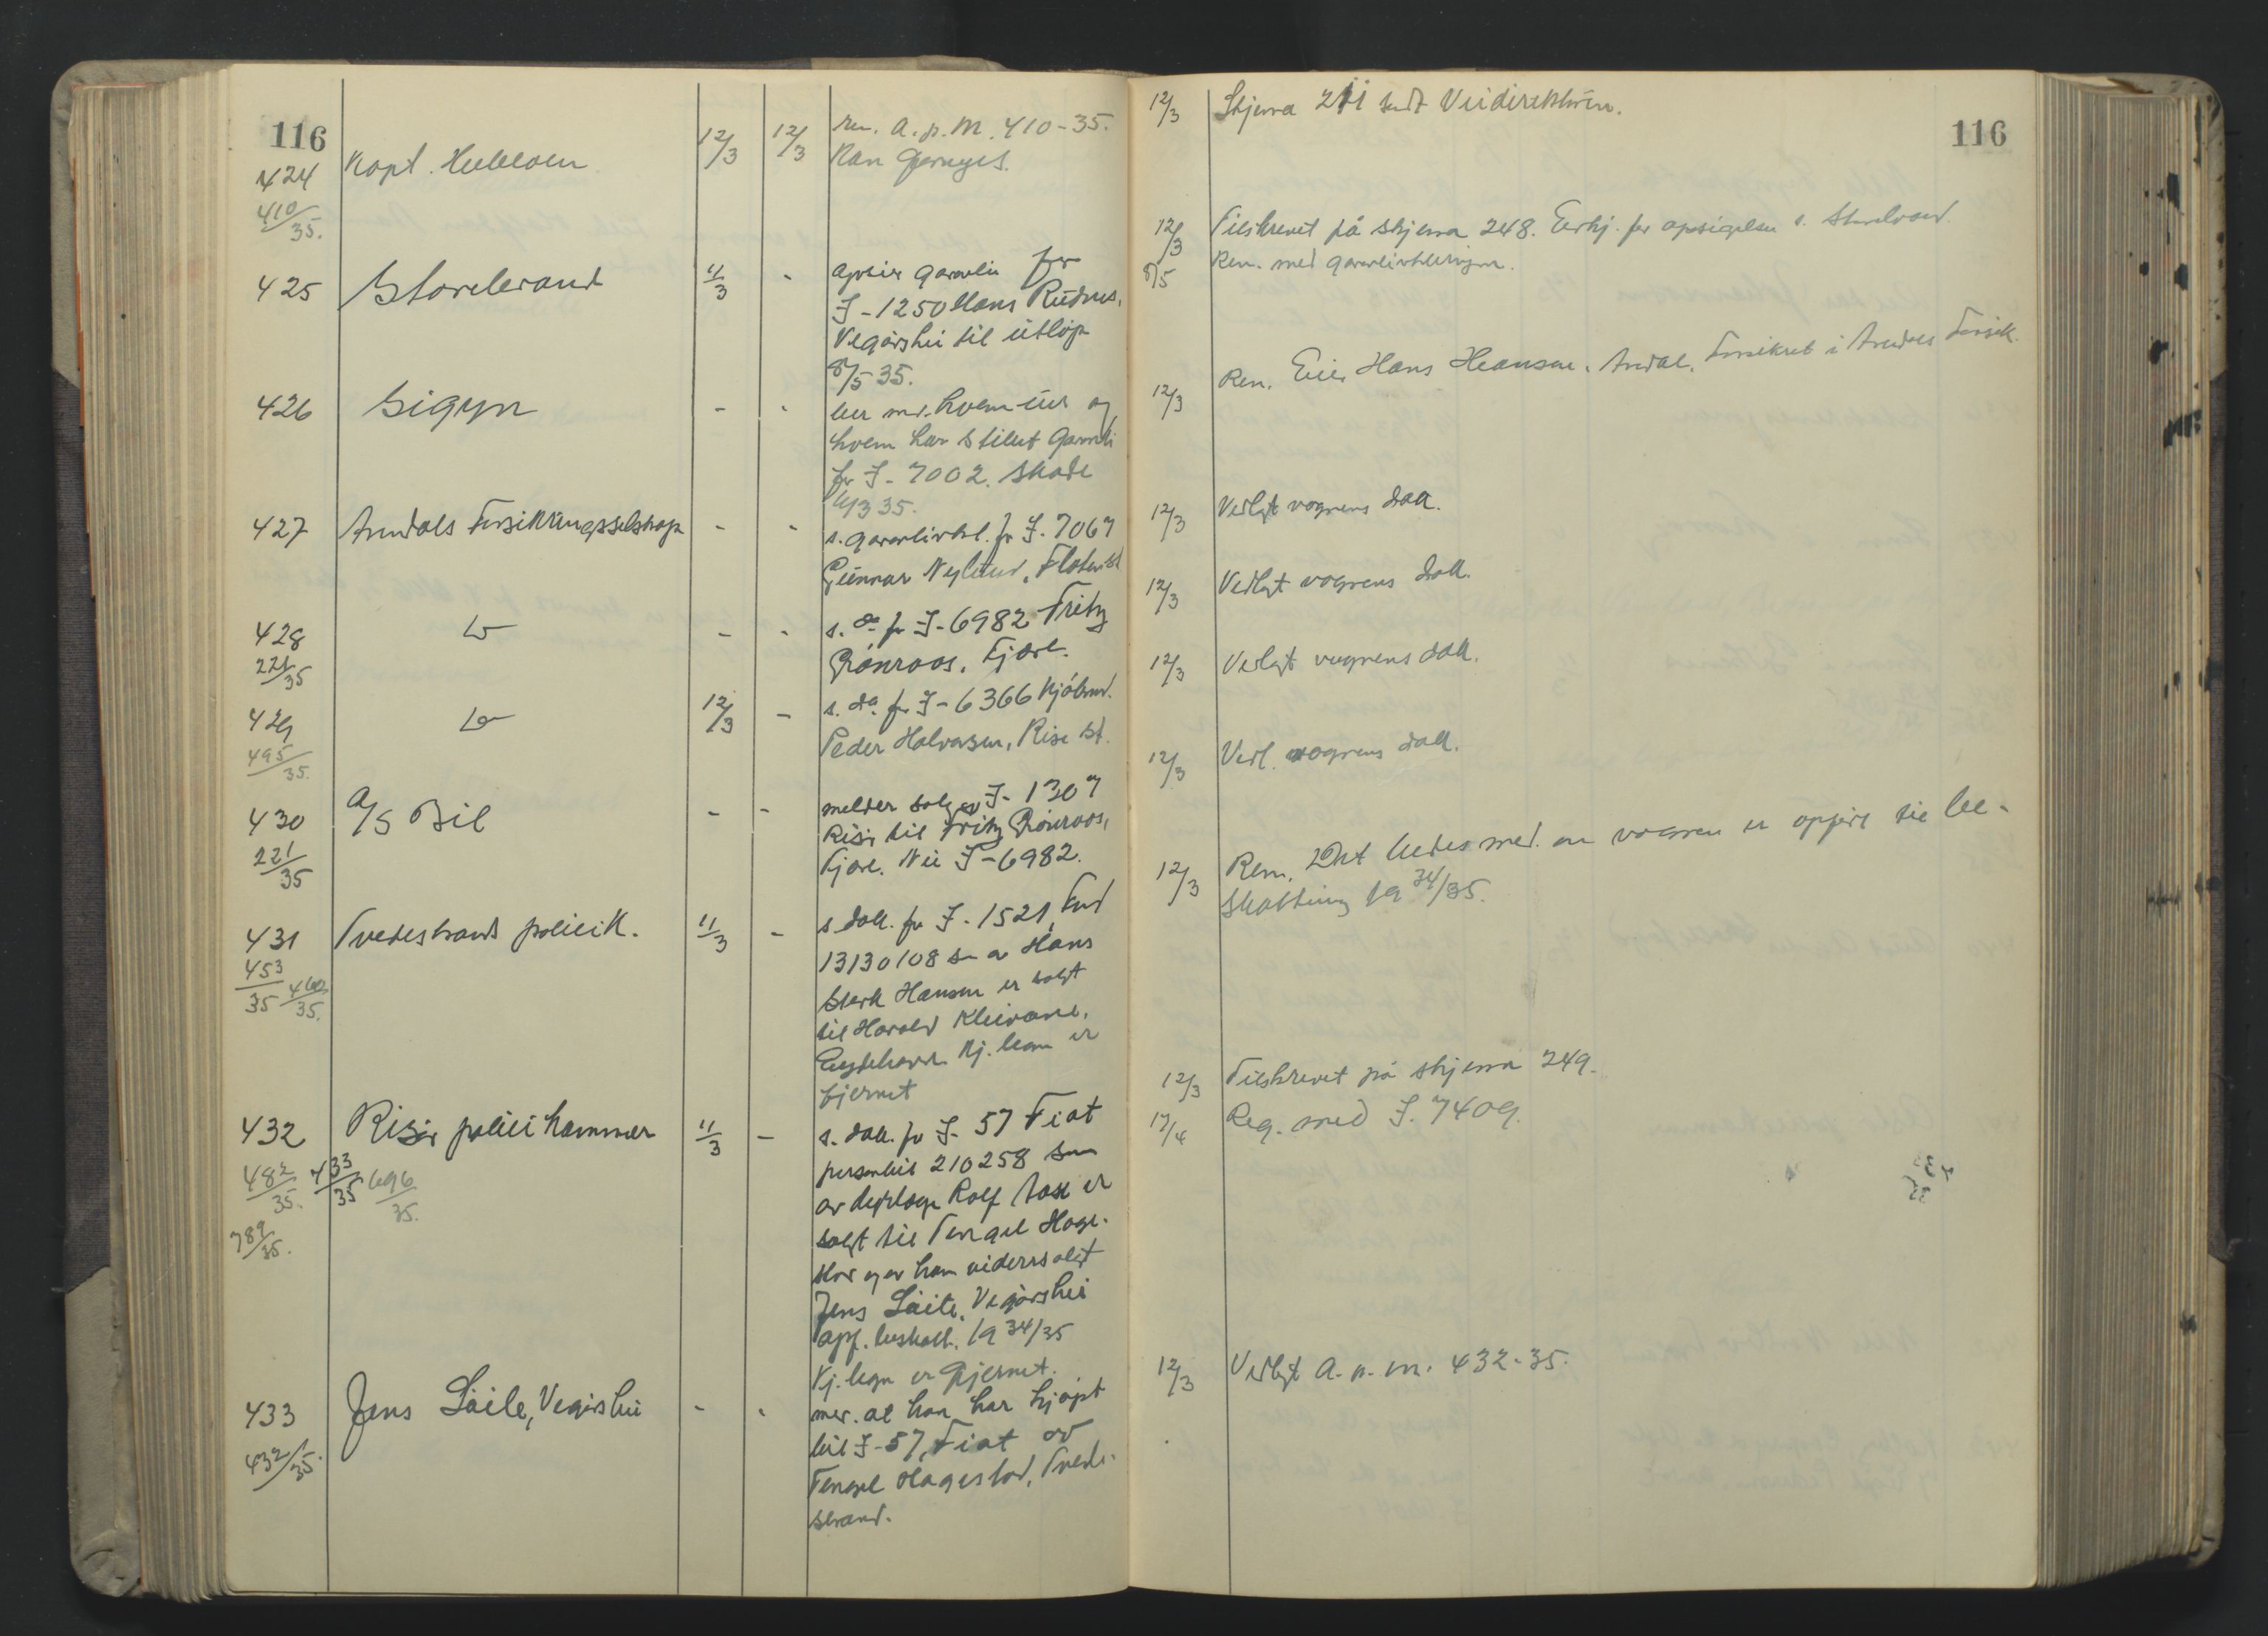 116
424
410/35.
Kapt.
12/3
12/3
ren. A. p. m. 410-35.
Kan
425
Storebrand
11/3
-
opsier garanti for
I-1250 Hans
Vegårshei til utløp
8/5-35.
426
Sigyn
-
-
ber med. hvem eier og
hvem har stillet garanti
for I-7002. Skade
427
Arendals Forsikringsselskap
-
-
s. garantierkl. for I-7067
Gunnar Nylund,
428
221/35
Do
-
-
s. do. for I-6982 Fritz
Grönroos, Fjære.
429
495/35.
Do
12/3
-
s. do. for I-6366 Kjøbmd.
Peder Halvorsen, Rise st.
430
221/35
A/S Bil
-
-
melder salg av I-1307
Risør til Fritz Grönroos,
Fjære. Nu I-6982.
431
453/35
460/35.
Tvedestrand politik.
11/3
-
s. dok. for I-1521, Ford
13130108 som av Hans
Sterk Hansen er solgt
til Harald Kleivane,
Kj. tegn er
fjernet
432
482/35.
433/35
696/35.
789/35.
Risør politikammer
11/3
-
s. dok. for I-57 Fiat
personbil 210258 som
av dyrlæge Rolf Aase er
solgt til Tengel Hage-
stad og av ham videresolgt
Jens Låite, Vegårshei
opf. beskatt. 1934/35
Kj. tegn er fjernet.
433
432/35.
Jens Låite, Vegårshei
-
-
med. at han har kjøpt
bil I-57, Fiat av
Tengel Hagestad, Tvede-
strand.
116
12/3
Skjema 211 sendt Veidirektøren.
12/3
Tilskrevet på skjema 248. Erkj. for opsigelsen s. Storebrand.
8/5
Ren. med garantierklæringen.
12/3
Ren. Eier Hans Hansen, Arendal. Forsikret i Arendals Forsik.
12/3
Vedlagt vognens dok.
12/3
Vedlagt vognens dok.
12/3
Vedlagt vognens dok.
12/3
Vedl. vognens dok.
12/3
Ren. Det bedes med. om vognen er opført til be-
skatning 1934/35.
12/3
Tilskrevet på skjema 249.
17/4
Reg. med I-7409.
12/3
Vedlagt A. p. m. 432-35.